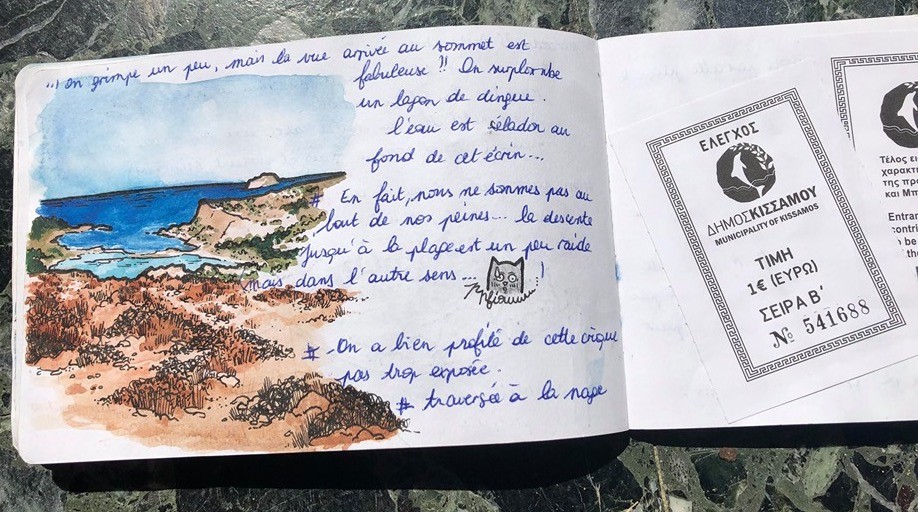 ...) on grimpe un peu, mais la vue arrivée au sommet est
fabuleuse !! On surplombe
un lagon de dingue.
l'eau est sélador au
fond de cet écrin...
# En fait, nous ne sommes pas au
bout de nos peines... la descente
jusqu'à la plage est un peu raide
mais dans l'autre sens... !
# - On a bien profité de cette crique
pas trop exposée.
# traversée à la nage
ΕΛΕΓΧΟΣ
ΔΗΜΟΣ ΚΙΣΣΑΜΟΥ
MUNICIPALITY OF KISSAMOS
ΤΙΜΗ
1€ (ΕΥΡΩ)
ΣΕΙΡΑ Β'
№ 541688
Τέλος
χαρακτ
της πρ
και Μπ
Entran
contri
be
the